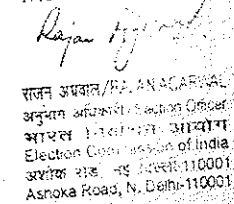 Rajan Agarwal
राजन अग्रवाल/RAJAN AGARWAL
अनुभाग अधिकारी/Section Officer
भारत निर्वाचन आयोग
Election Commission of India
अशोक रोड, नई दिल्ली-110001
Ashoka Road, N. Delhi-110001